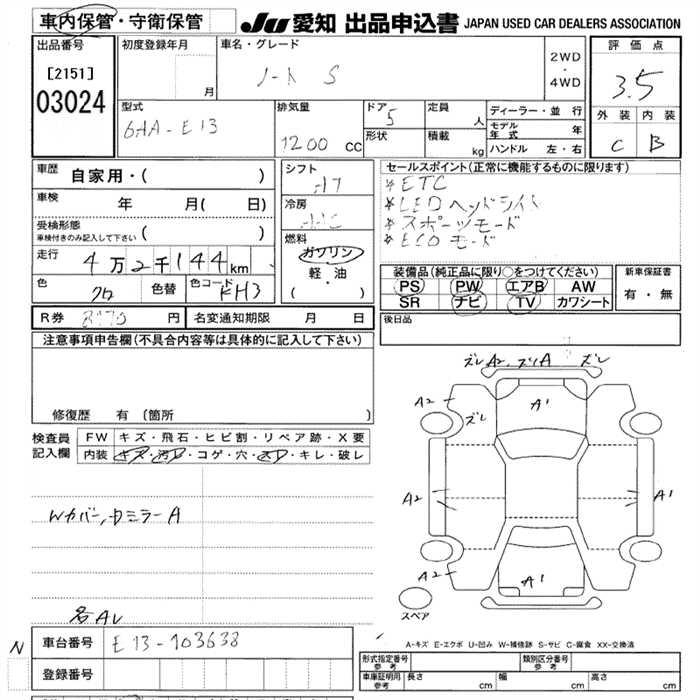 車内保管・守衛保管
JU 愛知 出品申込書 JAPAN USED CAR DEALERS ASSOCIATION
出品番号
[2151]
03024
初度登録年月
月
車名・グレード
ノート S
2WD
・
4WD
評価点
3.5
外装 内装
C B
型式
6AA-E13
排気量
1200 cc
ドア
5
形状
定員
人
積載
kg
ディーラー・並行
モデル年式 年
ハンドル 左・右
車歴 自家用・( )
車検 年 月( 日)
受検形態
車検付きのみ記入して下さい ( )
走行 4万2千144km
色 クロ 色替 色コード KH3
シフト
AT
冷房
AAC
燃料
ガソリン
軽・油
( ・ )
セールスポイント(正常に機能するものに限ります)
* ETC
* LEDヘッドライト
* スポーツモード
* ECOモード
装備品(純正品に限り○をつけてください)
PS PW エアB AW
SR ナビ TV カワシート
新車保証書
有・無
後日品
R券 円 名変通知期限 月 日
注意事項申告欄(不具合内容等は具体的に記入して下さい)
修復歴 有 (箇所 )
検査員記入欄
FW キズ・飛石・ヒビ割・リペア跡・X要
内装 キズ・汚レ・コゲ・穴・スレ・キレ・破レ
Wカバー, 中ミラーA
各AL
ズレ A2, ズレA ズレ
A2
ズレ
A1
A2
A1
A2
A1
スペア
A-キズ E-エクボ U-凹み W-補修跡 S-サビ C-腐食 XX-交換済
N 車台番号 E13-103638
登録番号
形式指定番号 参考
類別区分番号 参考
車庫証明用 参考 長さ cm 幅 cm 高さ cm